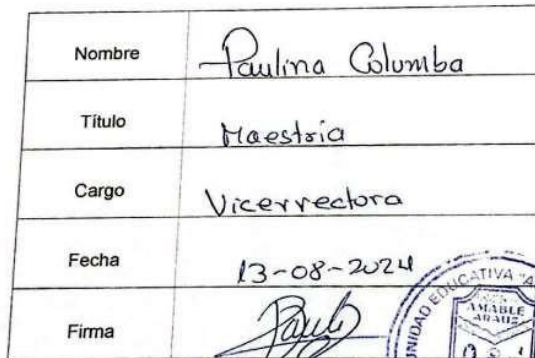 Nombre Paulina Columba
Título Maestria
Cargo Vicerrectora
Fecha 13-08-2024
Firma
UNIDAD EDUCATIVA "A
AMABLE
ARAUZ